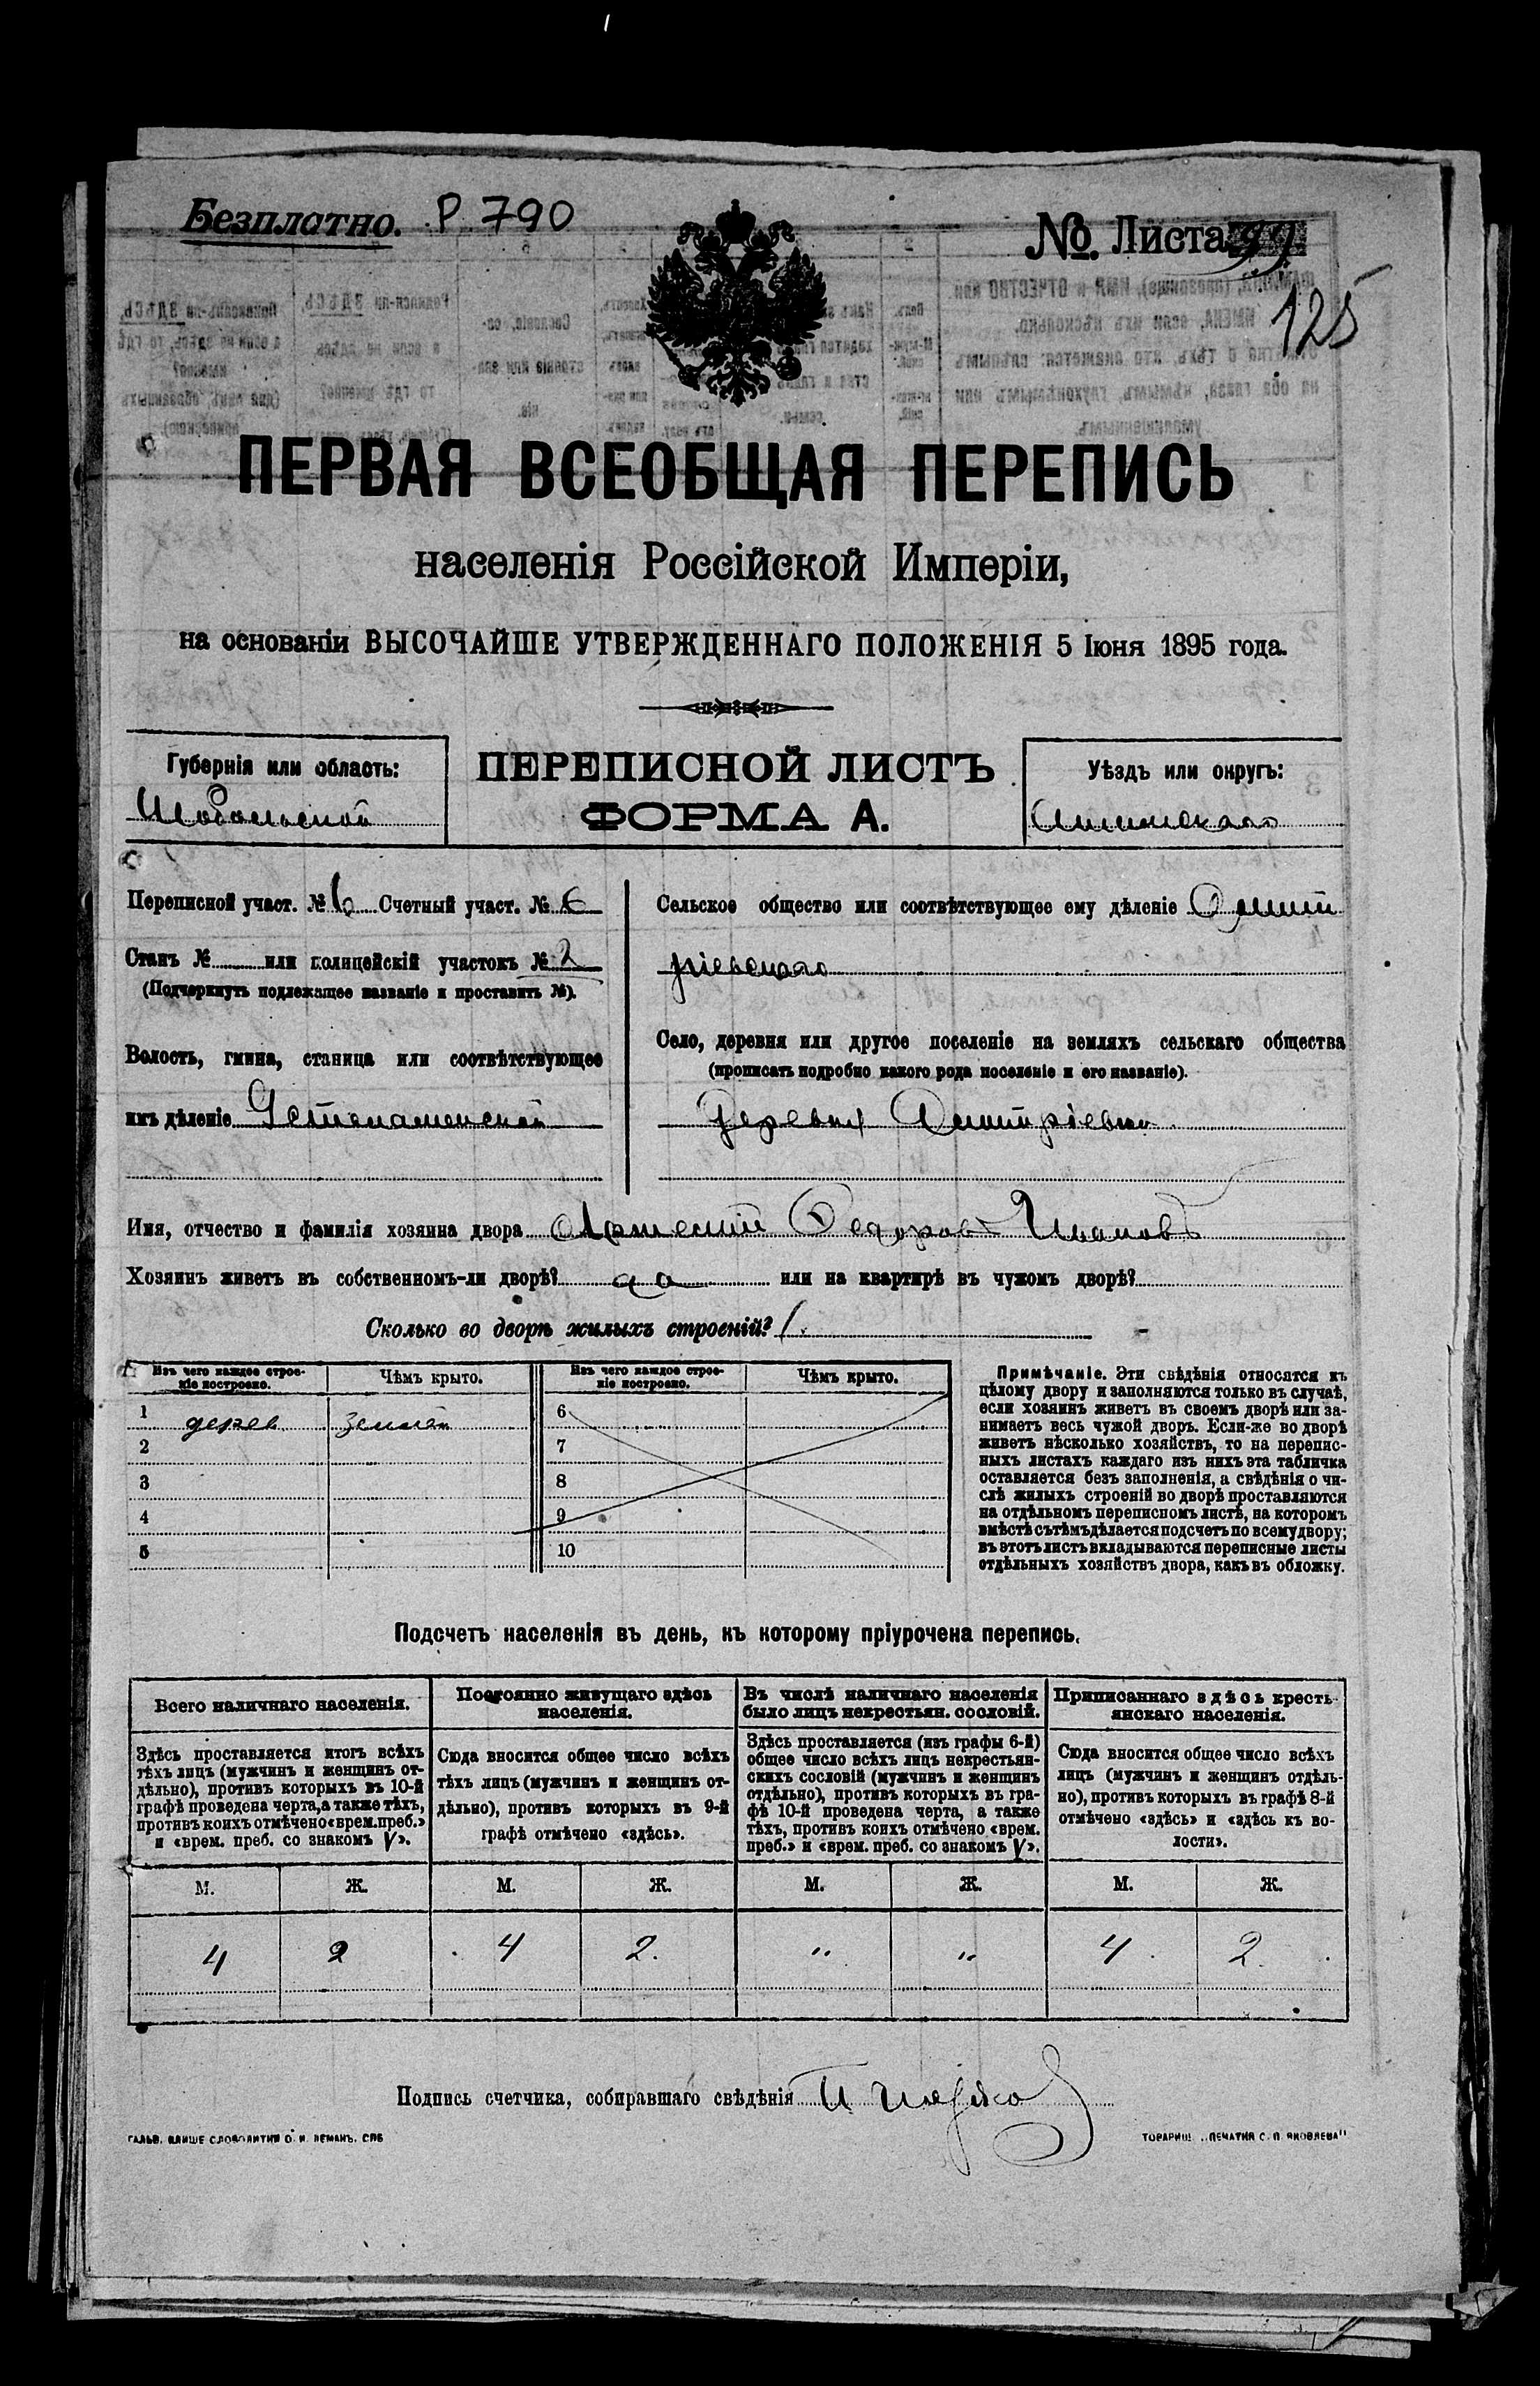 Безплатно. Р 790
№. Листа 99.
125
ПЕРВАЯ ВСЕОБЩАЯ ПЕРЕПИСЬ
населенія Россійской Имперіи,
на основаніи ВЫСОЧАЙШЕ УТВЕРЖДЕННАГО ПОЛОЖЕНІЯ 5 Іюня 1895 года.
Губернія или область:
Тобольской
ПЕРЕПИСНОЙ ЛИСТЪ
ФОРМА А.
Уѣздъ или округъ:
Ишимскаго
Переписной участ. № 6 Счетный участ. № 6
Станъ № или полицейскій участокъ № 2
(Подчеркнуть подлежащее названіе и проставить №).
Волость, гмина, станица или соотвѣтствующее
имъ дѣленіе
Сельское общество или соотвѣтствующее ему дѣленіе Дмит
ріевскаго
Село, деревня или другое поселеніе на земляхъ сельскаго общества
(прописать подробно какого рода поселеніе и его названіе).
Деревня Дмитріевка
Имя, отчество и фамилія хозяина двора Федоровъ Ивановъ
Хозяинъ живетъ въ собственномъ-ли дворѣ? да или на квартирѣ въ чужомъ дворѣ?
Сколько во дворѣ жилыхъ строеній? 1.
Изъ чего каждое строе-
ніе построено.
Чѣмъ крыто.
Изъ чего каждое строе-
ніе построено.
Чѣмъ крыто.
1 дерев землей 6
2 7
3 8
4 9
5 10
Примѣчаніе. Эти свѣдѣнія относятся къ
цѣлому двору и заполняются только въ случаѣ,
если хозяинъ живетъ въ своемъ дворѣ или за-
нимаетъ весь чужой дворъ. Если-же во дворѣ
живетъ нѣсколько хозяйствъ, то на перепис-
ныхъ листахъ каждаго изъ нихъ эта табличка
оставляется безъ заполненія, а свѣдѣнія о чи-
слѣ жилыхъ строеній во дворѣ проставляются
на отдѣльномъ переписномъ листѣ, на которомъ
вмѣстѣ съ тѣмъ дѣлается подсчетъ по всему двору;
въ этотъ листъ вкладываются переписные листы
отдѣльныхъ хозяйствъ двора, какъ въ обложку.
Подсчетъ населенія въ день, къ которому пріурочена перепись.
Всего наличнаго населенія.
Здѣсь проставляется итогъ всѣхъ
тѣхъ лицъ (мужчинъ и женщинъ от-
дѣльно), противъ которыхъ въ 10-й
графѣ проведена черта, а также тѣхъ,
противъ коихъ отмѣчено «врем. преб.»
и «врем. преб. со знакомъ V».
Постоянно живущаго здѣсь
населенія.
Сюда вносится общее число всѣхъ
тѣхъ лицъ (мужчинъ и женщинъ от-
дѣльно), противъ которыхъ въ 9-й
графѣ отмѣчено «здѣсь».
Въ числѣ наличнаго населенія
было лицъ некрестьян. сословій.
Здѣсь проставляется (изъ графы 6-й)
общее число всѣхъ лицъ некрестьян-
скихъ сословій (мужчинъ и женщинъ
отдѣльно), противъ которыхъ въ гра-
фѣ 10-й проведена черта, а также
тѣхъ, противъ коихъ отмѣчено «врем.
преб.» и «врем. преб. со знакомъ V».
Приписаннаго здѣсь кресть-
янскаго населенія.
Сюда вносится общее число всѣхъ
лицъ (мужчинъ и женщинъ отдѣль-
но), противъ которыхъ въ графѣ 8-й
отмѣчено «здѣсь» и «здѣсь къ во-
лости».
М. Ж. М. Ж. М. Ж. М. Ж.
4 2 4 2. " " 4. 2.
Подпись счетчика, собиравшаго свѣдѣнія
ГАЛЬВ. КЛИШЕ СЛОВОЛИТНИ О. И. ЛЕМАНЪ. СПБ
ТОВАРИЩ. „ПЕЧАТНЯ С. П. ЯКОВЛЕВА"